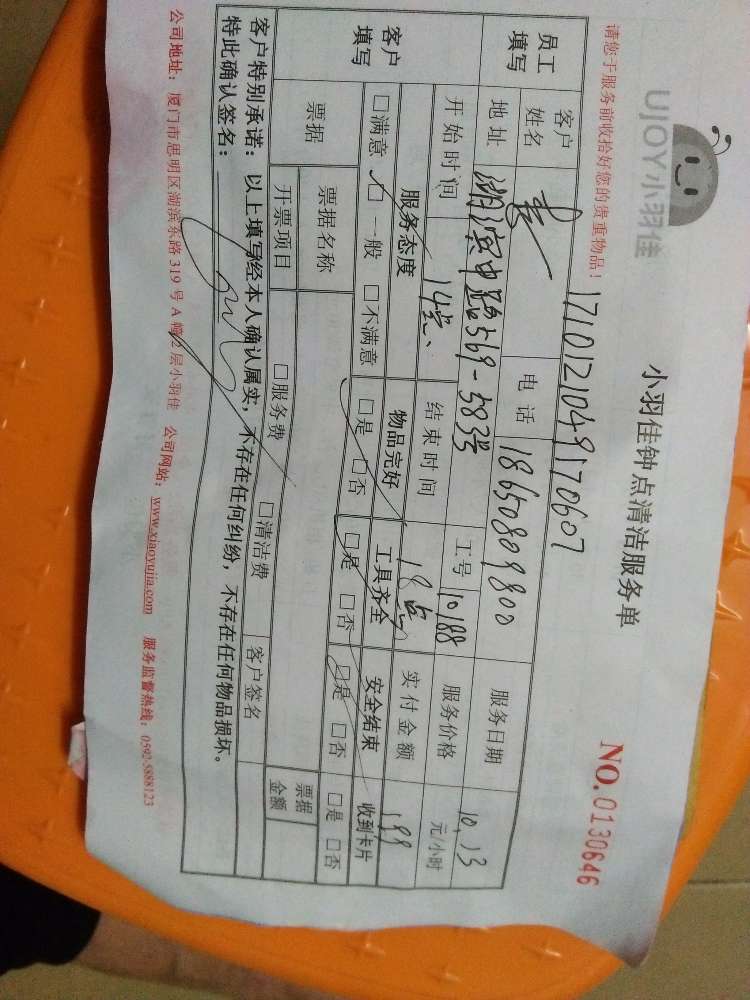 UJOY小羽佳
小羽佳钟点清洁服务单
NO.0130646
请您于服务前收拾好您的贵重物品！
1710121049170607
员工填写
客户姓名
电话 18650809800
服务日期 10.13
地址 湖滨中路569-583号
工号 10188
服务价格 元/小时
开始时间 14点
结束时间 18点
实付金额 199
客户填写
服务态度 物品完好 工具齐全 安全结束 收到卡片
□满意 □一般 □不满意 □是 □否 □是 □否 □是 □否 □是 □否
票据
票据名称
开票项目 □服务费 □清洁费
票据金额
客户特别承诺：以上填写经本人确认属实，不存在任何纠纷，不存在任何物品损坏。
特此确认签名：
客户签名
公司地址：厦门市思明区湖滨东路319号A幢2层小羽佳 公司网站：www.xiaoyujia.com 服务监督热线：0592-5888123